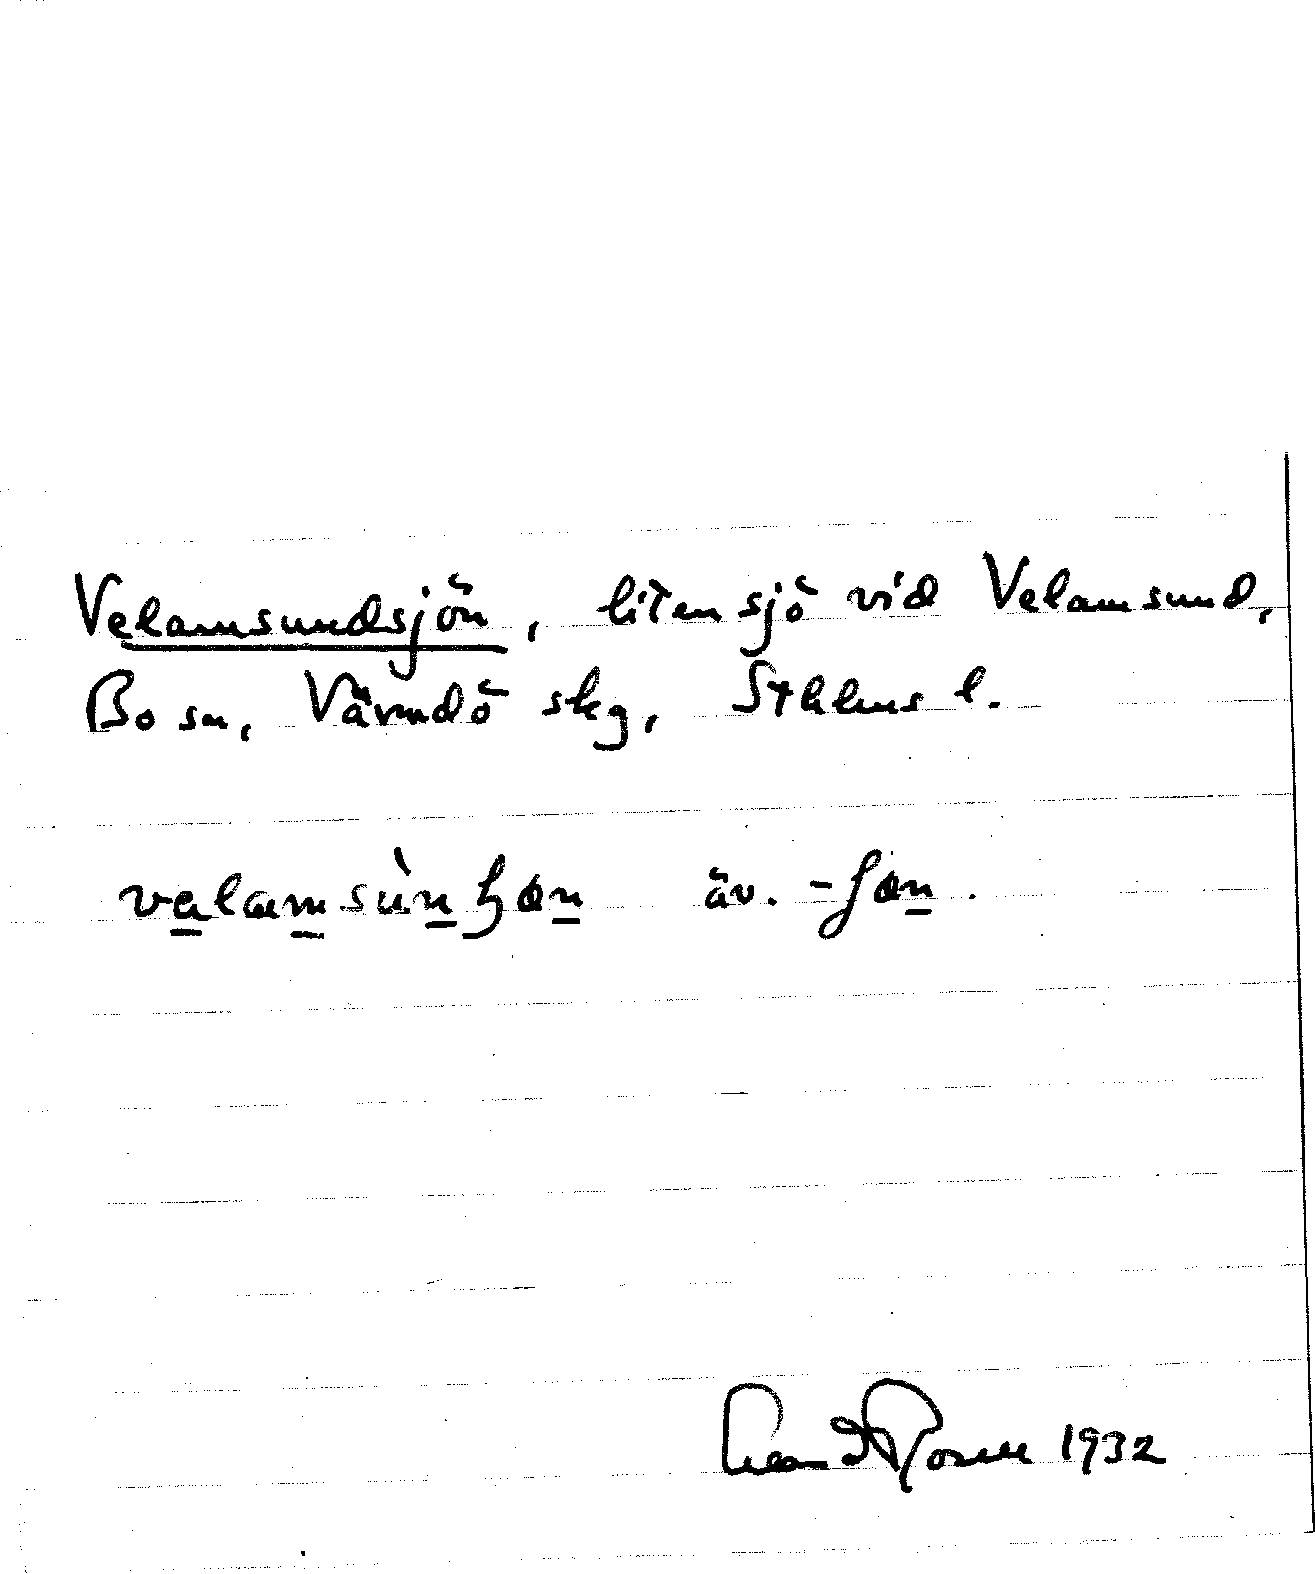 Velamsundsjön, liten sjö vid Velamsund,
Bo sn, Värmdö skg, Sthlms l.
äv.
1932